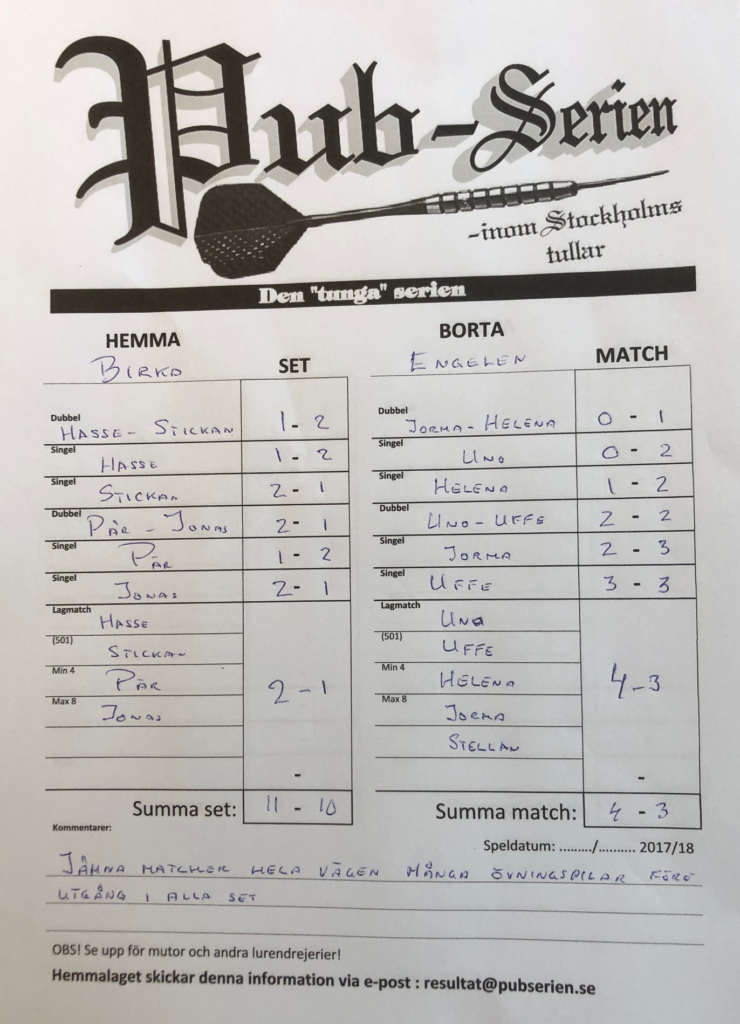 Pub-Serien
-inom Stockholms
tullar
Den "tunga" serien
HEMMA BORTA
BIRKA SET ENGELEN MATCH
Dubbel HASSE - STICKAN 1 - 2 Dubbel JORMA - HELENA 0 - 1
Singel HASSE 1 - 2 Singel UNO 0 - 2
Singel STICKAN 2 - 1 Singel HELENA 1 - 2
Dubbel PÄR - JONAS 2 - 1 Dubbel UNO - UFFE 2 - 2
Singel PÄR 1 - 2 Singel JORMA 2 - 3
Singel JONAS 2 - 1 Singel UFFE 3 - 3
Lagmatch HASSE Lagmatch UNO
(501) STICKAN (501) UFFE
Min 4 PÄR 2 - 1 Min 4 HELENA 4 - 3
Max 8 JONAS Max 8 JORMA
STELLAN
- -
Summa set: 11 - 10 Summa match: 4 - 3
Kommentarer: Speldatum: ........./.......... 2017/18
JÄMNA MATCHER HELA VÄGEN MÅNGA ÖVNINGSPILAR FÖRE
UTGÅNG I ALLA SET
OBS! Se upp för mutor och andra lurendrejerier!
Hemmalaget skickar denna information via e-post : resultat@pubserien.se